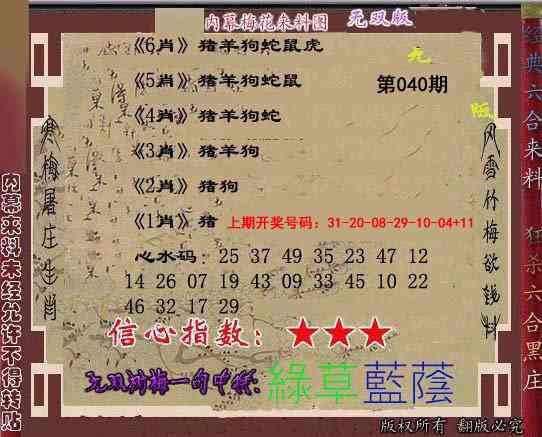 内幕梅花来料图 无双版
《6肖》猪羊狗蛇鼠虎
《5肖》猪羊狗蛇鼠
第040期
《4肖》猪羊狗蛇
《3肖》猪羊狗
《2肖》猪狗
《1肖》猪 上期开奖号码：31-20-08-29-10-04+11
心水码：25 37 49 35 23 47 12
14 26 07 19 43 09 33 45 10 22
46 32 17 29
信心指数：★★★
綠草藍蔭
寒梅屠庄生肖
风雪竹梅欲钱料
内幕来料未经允许不得转贴
经典六合来料 狂杀六合黑庄
版权所有 翻版必究